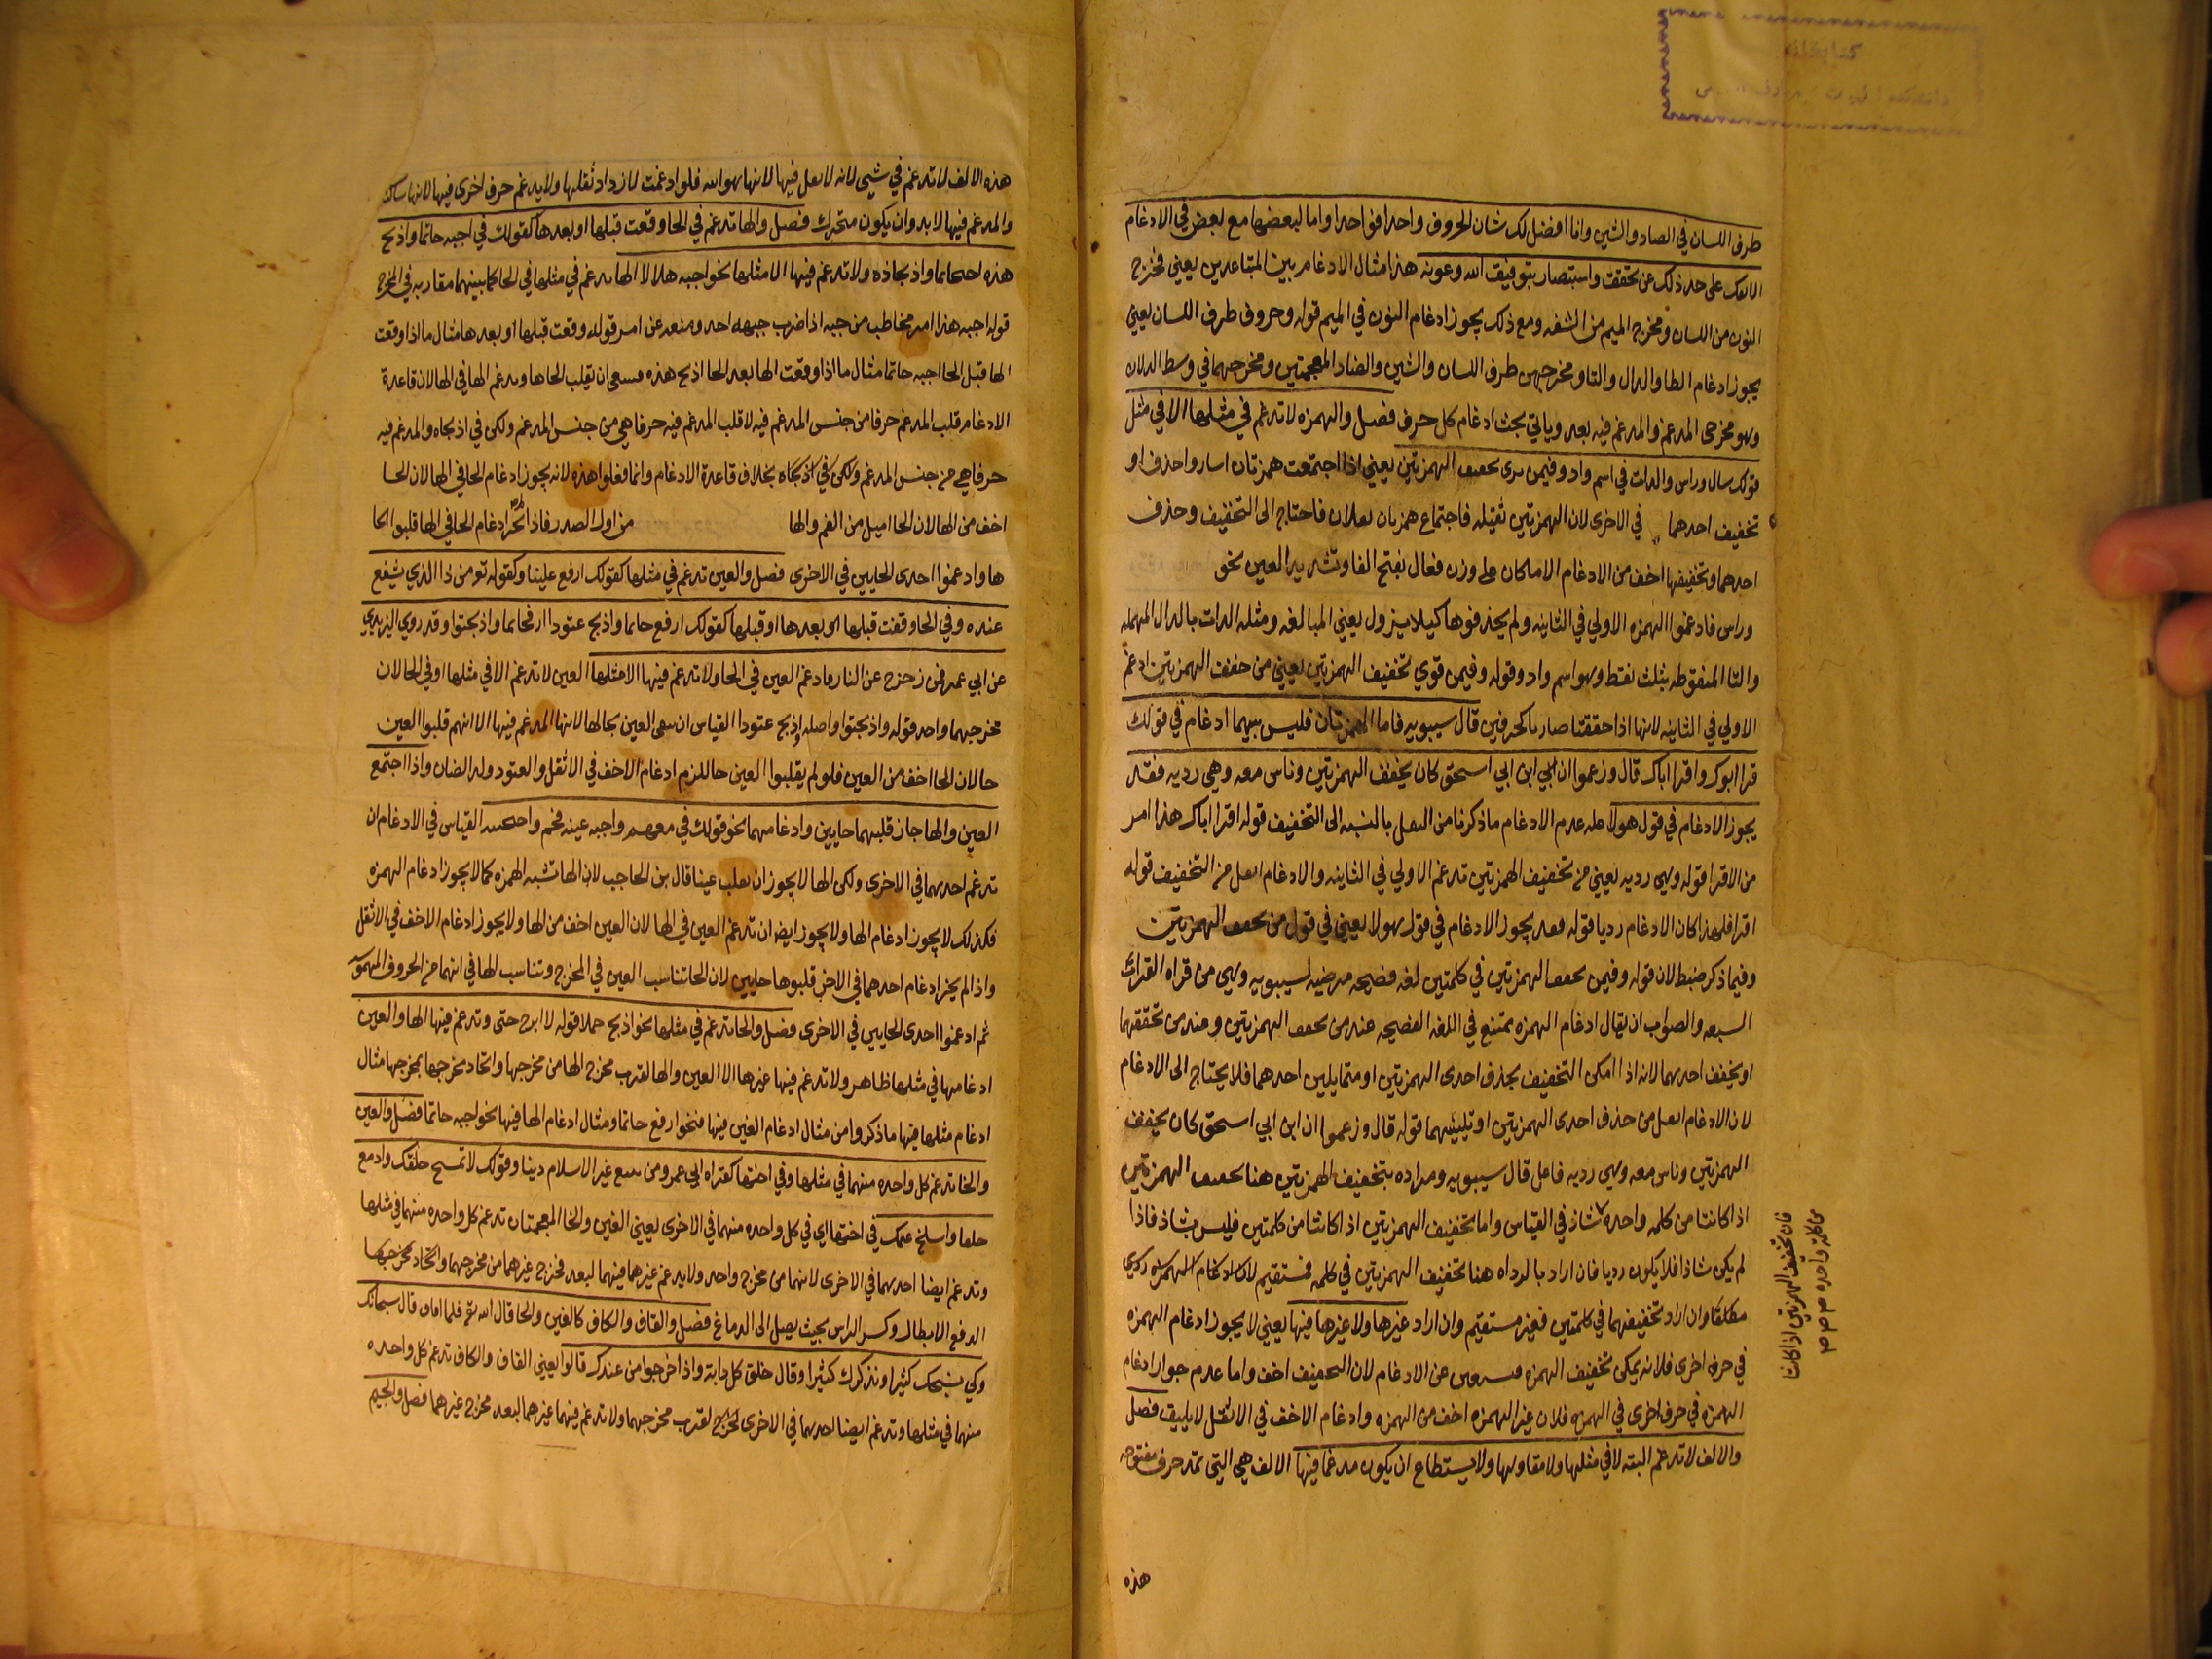 طرف اللسان في الصاد والشين وانا افضل لك شان الحروف واحدا فواحدا واما لبعضها مع بعض في الادغام
على حد ذلك عن تحقق واستبصار بتوفيق الله وعونه هذا مثال الادغام بين المتباعدين يعني مخرج
النون من اللسان ومخرج الميم من الشفه ومع ذلك يجوز ادغام النون في الميم قوله وحروف طرف اللسان يعني
يجوز ادغام الطا والدال والتا ومخرجهن طرف اللسان والشين والضاد المعجمتين ومخرجهما في وسط
وهو مخرجى المدغم والمدغم فيه بعد وياتي بحث ادغام كل حرف فصل والهمزه لا تدغم في مثلها الا في مثل
قولك سال وراس والدات في اسم واد وفيمن يرى تحقيق الهمزتين يعني اذا اجتمعت همزتان او
تخفيف احدهما في الاخرى لان الهمزتين ثقيله فاجتماع همزتان فاحتاج الى التخفيف وحذف
احدهما وتخفيفها اخف من الادغام الا مكان على وزن فعال بفتح الفا وتشديد العين نحو
وراس فادغموا الهمزه الاولي في الثانيه ولم يحذفوها كيلا يزول يعني المبالغه ومثله الدات بالدال المهمله
والثا المنقوطه بثلث نقط وهو اسم واد وقوله وفيمن قوي تخفيف الهمزتين يعني من حفف الهمزتين ادغم
الاولي في الثانيه لانها اذا حققتا صار كالحرفين قال سيبويه فاما الهمزتان فليس بينهما ادغام في قولك
قرا ابوك واقرا اباك قال وزعموا ان ابي ابن ابي اسحق كان يخفف الهمزتين وناس معه وهي رديه فقد
يجوز الادغام في قول هولا عله عدم الادغام ما ذكرنا من بالنسبه الى التخفيف قوله اقرا اباك هذا امر
من الاقرا قوله وهي رديه يعني من تخفيف الهمزتين تدغم الاولي في الثانيه والادغام من التخفيف قوله
اقرا فلهذا كان الادغام رديا قوله فقد يجوز الادغام في قول هولا يعني في قول من الهمزتين
وفيما ذكر ضبط لان قوله وفيمن الهمزتين في كلمتين لغه فصيحه مرضيه لسيبويه وهي من قراه القرات
السبعه والصواب ان يقال ادغام الهمزه ممتنع في اللغه الفصيحه عند من الهمزتين وعند من تحققهما
او يخفف احدهما لانه اذا امكن التخفيف بحذف احدى الهمزتين او احدهما فلا يحتاج الى الادغام
لان الادغام من حذف احدى الهمزتين او تليينهما قوله قال وزعموا ان ابن ابي اسحق كان يخفف
الهمزتين وناس معه وهي رديه قال سيبويه ومراده بتخفيف الهمزتين هنا الهمزتين
اذا كانتا من كلمه واحده شاذ في القياس واما تخفيف الهمزتين اذا كانتا من كلمتين فليس بشاذ فاذا
لم يكن شاذا فلا يكون رديا فان اراد هنا تخفيف الهمزتين في كلمه فمستقيم لان ادغام الهمزه ردي
مطلقا وان اراد تخفيفهما في كلمتين فغير مستقيم وان اراد غيرها ولا غيرها فيها يعني لا يجوز ادغام الهمزه
في حرف اخرى فلانه يمكن تخفيف الهمزه عن الادغام لان اخف واما عدم جواز ادغام
الهمزه في حرف اخرى في الهمزه فلان غير الهمزه اخف من الهمزه وادغام الاخف في الاثقل لا يليق فصل
والالف لا تدغم البته لا في مثلها ولا مقاربها ولا يستطاع ان يكون مدغما فيها الالف هي التي تمد حرف مفتوحه
هذه
فان تخفيف الهمزتين اذا كانتا
من كلمة واحده صح
هذه الالف لا تدغم في شيى لانه فيها لانها هوا الله فلو ادغمت لازداد ثقلها ولا يدغم حرف اخرى فيها لانها ساكنه
والمدغم فيها لا بد وان يكون متحرك فصل والها تدغم في الحا وقعت قبلها او بعدها كقولك في اجبه حاتما واذبح
هذه اجحاتما واذبحاذه ولا تدغم فيها الا مثلها نحو اجبه هلالا الها تدغم في مثلها في الحا بينهما مقاربه في المخرج
قوله اجبه هذا امر مخاطب من جبه اذا ضرب جبهه احد ومنعه عن امر قوله وقعت قبلها او بعدها مثال ما اذا وقعت
الها قبل الحا اجبه حاتما مثال ما اذا وقعت الها بعد الحا اذبح هذه ان يقلب الحا ها ويدغم الها في الها لان قاعدة
الادغام قلب المدغم حرفا من جنس المدغم فيه لا قلب المدغم فيه حرفا هي من جنس المدغم ولكن في اذبحاه والمدغم فيه
حرفا هي من جنس المدغم ولكن في اذبحاه بخلاف قاعدة الادغام وانما فعلوا هذه لانه يجوز ادغام الحا في الها لان الحا
اخف من الها لان الحا اميل من الفم والها من اول الصدر فاذا ادغام الحا في الها قلبوا الحا
ها وادغموا احدى الحايين في الاخرى فصل والعين تدغم في مثلها كقولك ارفع علينا وكقوله تو من ذا الذي يشفع
عنده وفي الحا وقعت قبلها او بعدها او قبلها كقولك ارفع حاتما واذبح عتودا ارفحاتما واذبحتوا وقد روي اليزيدي
عن ابي عمر فمن زحزح عن النار بادغم العين في الحا ولا تدغم فيها الا مثلها العين لا تدغم الا في مثلها او في الحا لان
مخرجهما واحد قوله واذبحتوا واصله واذبح عتودا القياس ان العين بحالها لانها المدغم فيها الا انهم قلبوا العين
حا لان الحا اخف من العين فلو لم يقلبوا العين حا للزم ادغام الاخف في الاثقل والعتود ولد الضان واذا اجتمع
العين والها جاز قلبهما حايين وادغامهما نحو قولك في معهم واجبه عينه محم القياس في الادغام ان
تدغم احدهما في الاخرى ولكن الها لا يجوز ان عينا قال بن الحاجب لان الها تشبه الهمزه كما لا يجوز ادغام الهمزه
فكذلك لا يجوز ادغام الها ولا يجوز ايضا ان تدغم العين في الها لان العين اخف من الها ولا يجوز ادغام الاخف في الاثقل
واذا لم يجز ادغام احدهما في الاخر قلبوها حايين لان الحا تناسب العين في المخرج وتناسب الها في انهما من الحروف المهموسه
ثم ادغموا احدى الحايين في الاخرى فصل والحا تدغم في مثلها نحو اذبح حملا قوله لا ابرح حتى وتدغم فيها الها والعين
ادغامها في مثلها ظاهر ولا تدغم فيها غيرها الا العين والها لقرب مخرج الها من مخرجها واتحاد مخرجها بمخرجها مثال
ادغام مثلها فيها ما ذكروا من مثال ادغام العين فيها فنحو ارفع حاتما ومثال ادغام الها فيها نحو اجبه حاتما فصل والغين
والخا تدغم كل واحده منهما في مثلها وفي اختها كقراه ابي عمرو ومن يبتغ غير الاسلام دينا وقولك لا تمسح خلقك وادمغ
خلفا واسلخ غنمك في اختها اي في كل واحده منهما في الاخرى يعني الغين والخا المعجمتان تدغم كل واحده منهما في مثلها
وتدغم ايضا احدهما في الاخرى لانهما من مخرج واحد ولا يدغم غيرهما فيهما لبعد مخرج غيرهما من مخرجهما واتحاد مخرجهما
الدفع الابطال وكسر الراس بحيث يصل الى الدماغ فصل والقاف والكاف كالغين والخا قال الله تع فلما افاق قال سبحانك
وكي نسبحك كثيرا ونذكرك كثيرا وقال خلق كل دابة واذا خرجوا من عندك قالوا يعني القاف والكاف تدغم كل واحده
منهما في مثلها وتدغم ايضا احدهما في الاخرى لقرب مخرجهما ولا تدغم فيهما غيرهما لبعد مخرج غيرهما فصل والجيم